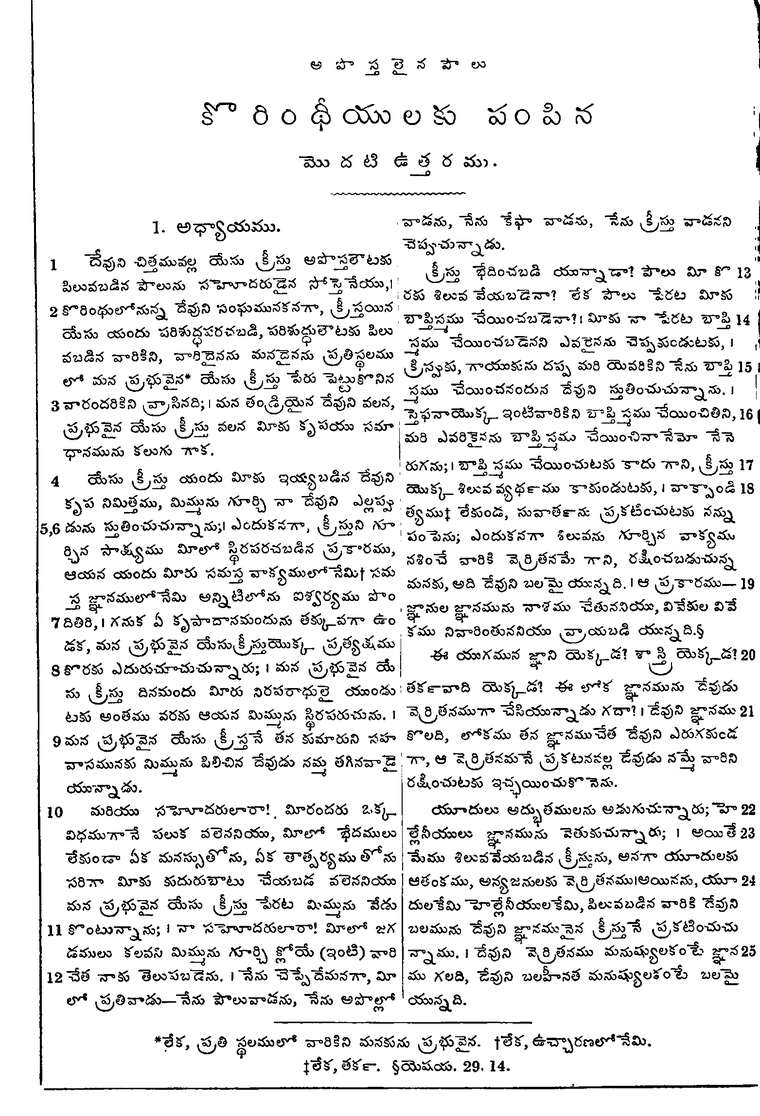 అ పొ స్త లై న పౌ లు
కొ రింథీయులకు పంపిన
మొ ద టి ఉ త్త ర ము.
1. అధ్యాయము.
1 దేవుని చిత్తమువల్ల యేసు క్రీస్తు అపొస్తలౌటకు
పిలువబడిన పౌలును సహోదరుడైన సోస్తెనేయు,।
2 కొరింథులోనున్న దేవుని సంఘమునకనగా, క్రీస్తయిన
యేసు యందు పరిశుద్ధపరచబడి, పరిశుద్ధులౌటకు పిలు
వబడిన వారికిని, వారిదైనను మనదైనను ప్రతిస్థలము
లో మన ప్రభువైన* యేసు క్రీస్తు పేరు పెట్టుకొనిన
3 వారందరికిని వ్రాసినది;। మన తండ్రియైన దేవుని వలన,
ప్రభువైన యేసు క్రీస్తు వలన మీకు కృపయు సమా
ధానమును కలుగు గాక.
4 యేసు క్రీస్తు యందు మీకు ఇయ్యబడిన దేవుని
కృప నిమిత్తము, మిమ్మును గూర్చి నా దేవుని ఎల్లప్పు
5,6 డును స్తుతించుచున్నాను;। ఎందుకనగా, క్రీస్తుని గూ
ర్చిన సాక్ష్యము మీలో స్థిరపరచబడిన ప్రకారము,
ఆయన యందు మీరు సమస్త వాక్యములోనేమి† సమ
స్త జ్ఞానములోనేమి అన్నిటిలోను ఐశ్వర్యము పొం
7 దితిరి,। గనుక ఏ కృపాదానమందును తక్కువగా ఉం
డక, మన ప్రభువైన యేసుక్రీస్తుయొక్క ప్రత్యక్షము
8 కొరకు ఎదురుచూచుచున్నారు;। మన ప్రభువైన యే
సు క్రీస్తు దినమందు మీరు నిరపరాధులై యుండు
టకు అంతము వరకు ఆయన మిమ్మును స్థిరపరుచును.।
9 మన ప్రభువైన యేసు క్రీస్తనే తన కుమారుని సహ
వాసమునకు మిమ్మును పిలిచిన దేవుడు నమ్మ తగినవాడై
యున్నాడు.
10 మరియు సహోదరులారా! మీరందరు ఒక్క
విధముగానే పలుక వలెననియు, మీలో భేదములు
లేకుండా ఏక మనస్సుతోను, ఏక తాత్పర్యముతోను
సరిగా మీకు కుదురుబాటు చేయబడ వలెననియు
మన ప్రభువైన యేసు క్రీస్తు పేరట మిమ్మును వేడు
11 కొంటున్నాను;। నా సహోదరులారా! మీలో జగ
డములు కలవని మిమ్మును గూర్చి క్లోయే (ఇంటి) వారి
12 చేత నాకు తెలుపబడెను.। నేను చెప్పేదేమనగా, మీ
లో ప్రతివాడు—నేను పౌలువాడను, నేను అపొల్లో
వాడను, నేను కేఫా వాడను, నేను క్రీస్తు వాడనని
చెప్పుచున్నాడు.
క్రీస్తు భేదించబడి యున్నాడా? పౌలు మీ కొ 13
రకు శిలువ వేయబడెనా? లేక పౌలు పేరట మీకు
బాప్తిస్మము చేయించబడెనా?। మీకు నా పేరట బాప్తి 14
స్మము చేయించబడెనని ఎవరైనను చెప్పకుండుటకు,।
క్రిస్పుకు, గాయుకును దప్ప మరి యెవరికిని నేను బాప్తి 15
స్మము చేయించనందున దేవుని స్తుతించుచున్నాను.।
స్తెఫనాయొక్క ఇంటివారికిని బాప్తిస్మము చేయించితిని, 16
మరి ఎవరికైనను బాప్తిస్మము చేయించినానేమో నేనె
రుగను;। బాప్తిస్మము చేయించుటకు కాదు గాని, క్రీస్తు 17
యొక్క శిలువ వ్యర్థము కాకుండుటకు,। వాక్పాండి 18
త్యము‡ లేకుండ, సువార్తను ప్రకటించుటకు నన్ను
పంపెను; ఎందుకనగా శిలువను గూర్చిన వాక్యము
నశించే వారికి వెర్రితనమే గాని, రక్షించబడుచున్న
మనకు, అది దేవుని బలమై యున్నది.। ఆ ప్రకారము— 19
జ్ఞానుల జ్ఞానమును నాశము చేతుననియు, వివేకుల వివే
కము నివారింతుననియు వ్రాయబడి యున్నది.§
ఈ యుగమున జ్ఞాని యెక్కడ? శాస్త్రి యెక్కడ? 20
తర్కవాది యెక్కడ? ఈ లోక జ్ఞానమును దేవుడు
వెర్రితనముగా చేసియున్నాడు గదా?। దేవుని జ్ఞానము 21
కొలది, లోకము తన జ్ఞానముచేత దేవుని ఎరుగకుండ
గా, ఆ వెర్రితనమనే ప్రకటనవల్ల దేవుడు నమ్మే వారిని
రక్షించుటకు ఇచ్ఛయించుకొనెను.
యూదులు అద్భుతములను అడుగుచున్నారు; హె 22
ల్లేనీయులు జ్ఞానమును వెదుకుచున్నారు;। అయితే 23
మేము శిలువవేయబడిన క్రీస్తును, అనగా యూదులకు
ఆతంకము, అన్యజనులకు వెర్రితనము।అయినను, యూ 24
దులకేమి హెల్లేనీయులకేమి, పిలువబడిన వారికి దేవుని
బలమును దేవుని జ్ఞానమునైన క్రీస్తునే ప్రకటించుచు
న్నాము.। దేవుని వెర్రితనము మనుష్యులకంటే జ్ఞాన 25
ము గలది, దేవుని బలహీనత మనుష్యులకంటే బలమై
యున్నది.
*లేక, ప్రతి స్థలములో వారికిని మనకును ప్రభువైన. †లేక, ఉచ్చారణలోనేమి.
‡లేక, తర్క. §యెషయ. 29. 14.